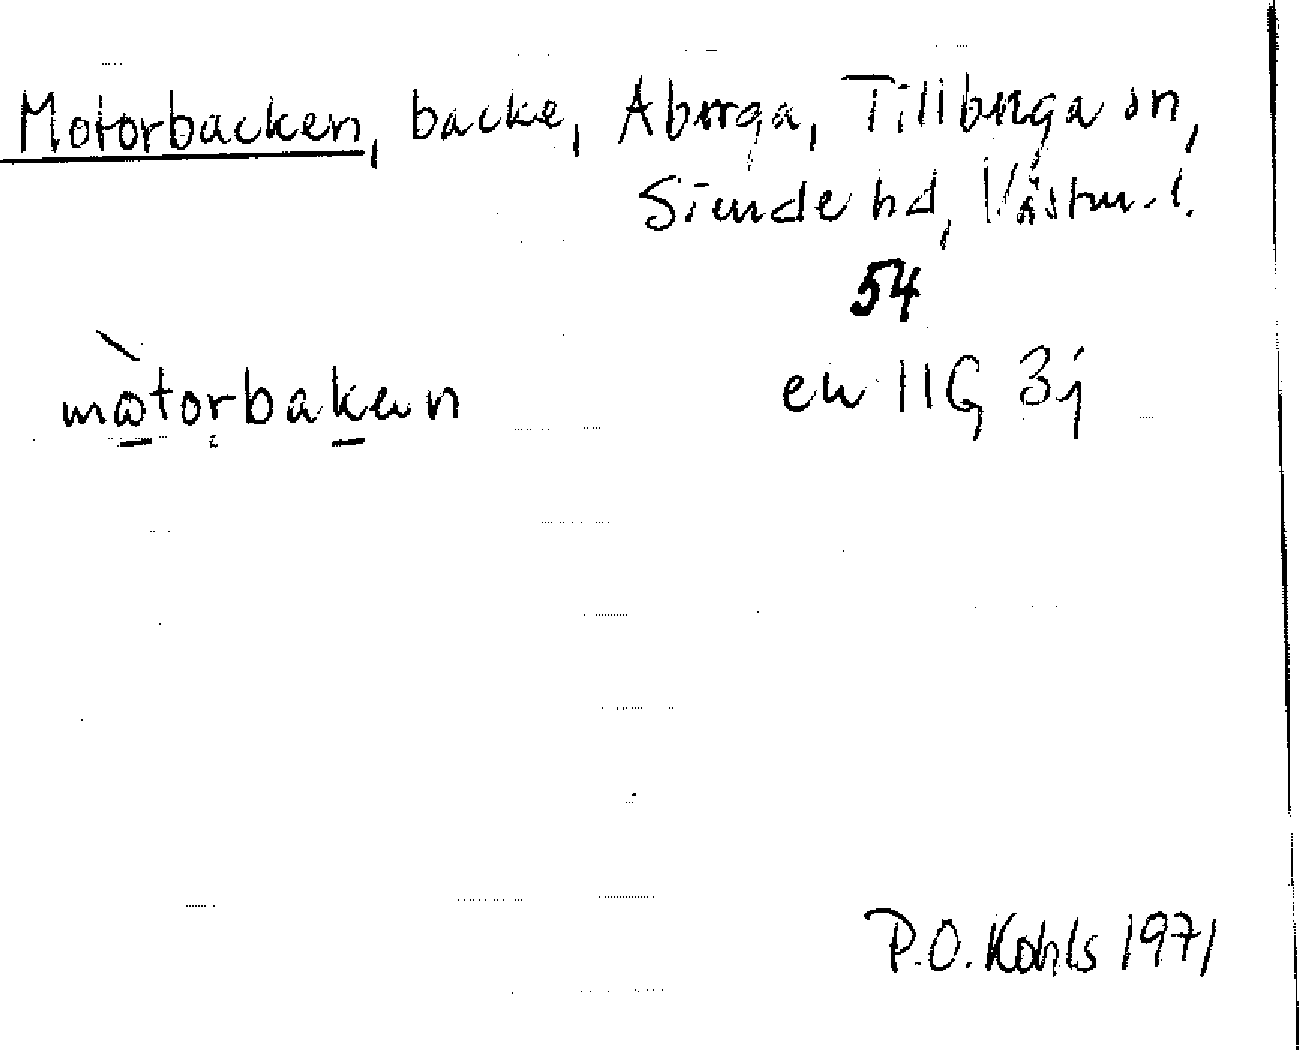 Motorbacken, backe, Aburga, Tillberga sn,
Siende hd, Västm. l.
54
mòtorbakən
ek 11G 3j
P.O. Kohls 1971